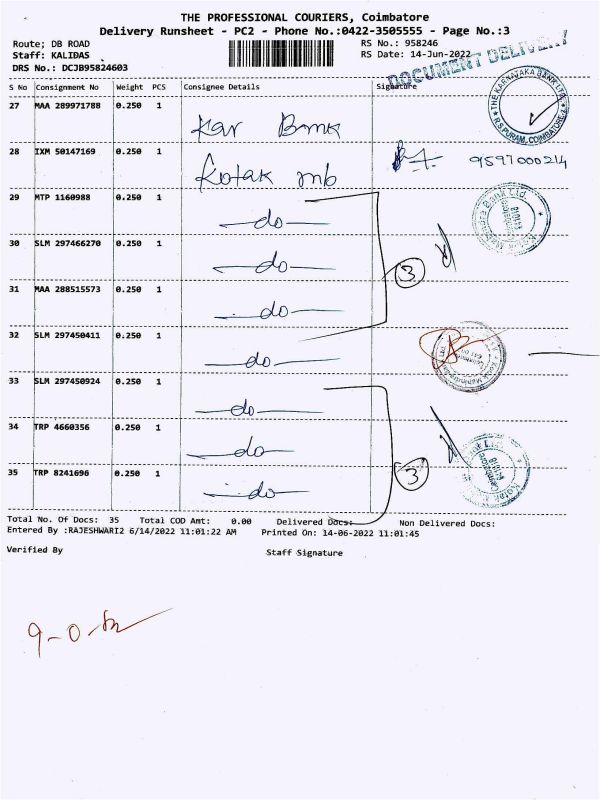 THE PROFESSIONAL COURIERS, Coimbatore
Delivery Runsheet - PC2 - Phone No.:0422-3505555 - Page No.:3
Route; DB ROAD
Staff: KALIDAS
DRS No.: DCJB95824603
RS No.: 958246
RS Date: 14-Jun-2022
DOCUMENT DELIVERY
S No Consignment No Weight PCS Consignee Details Signature
27 MAA 289971788 0.250 1 Kar Bank
THE KARNATAKA BANK LTD. R S PURAM, COIMBATORE
28 IXM 50147169 0.250 1 Kotak mb 9597000214
29 MTP 1160988 0.250 1 -do-
30 SLM 297466270 0.250 1 -do-
3
31 MAA 288515573 0.250 1 -do-
32 SLM 297450411 0.250 1 -do-
33 SLM 297450924 0.250 1 -do-
34 TRP 4660356 0.250 1 -do-
3
35 TRP 8241696 0.250 1 -do-
Total No. Of Docs: 35 Total COD Amt: 0.00 Delivered Docs: Non Delivered Docs:
Entered By :RAJESHWARI2 6/14/2022 11:01:22 AM Printed On: 14-06-2022 11:01:45
Verified By Staff Signature